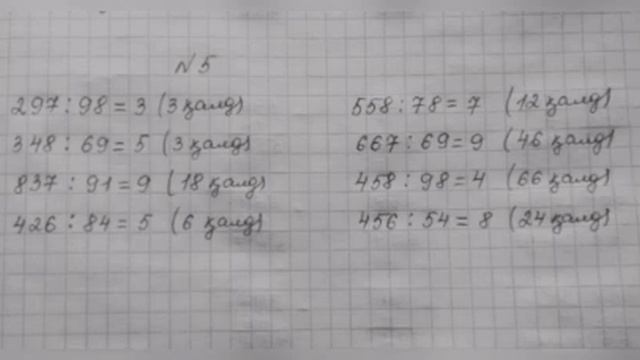 N 5
297 : 98 = 3 (3 қалд)
348 : 69 = 5 (3 қалд)
837 : 91 = 9 (18 қалд)
426 : 84 = 5 (6 қалд)
558 : 78 = 7 (12 қалд)
667 : 69 = 9 (46 қалд)
458 : 98 = 4 (66 қалд)
456 : 54 = 8 (24 қалд)